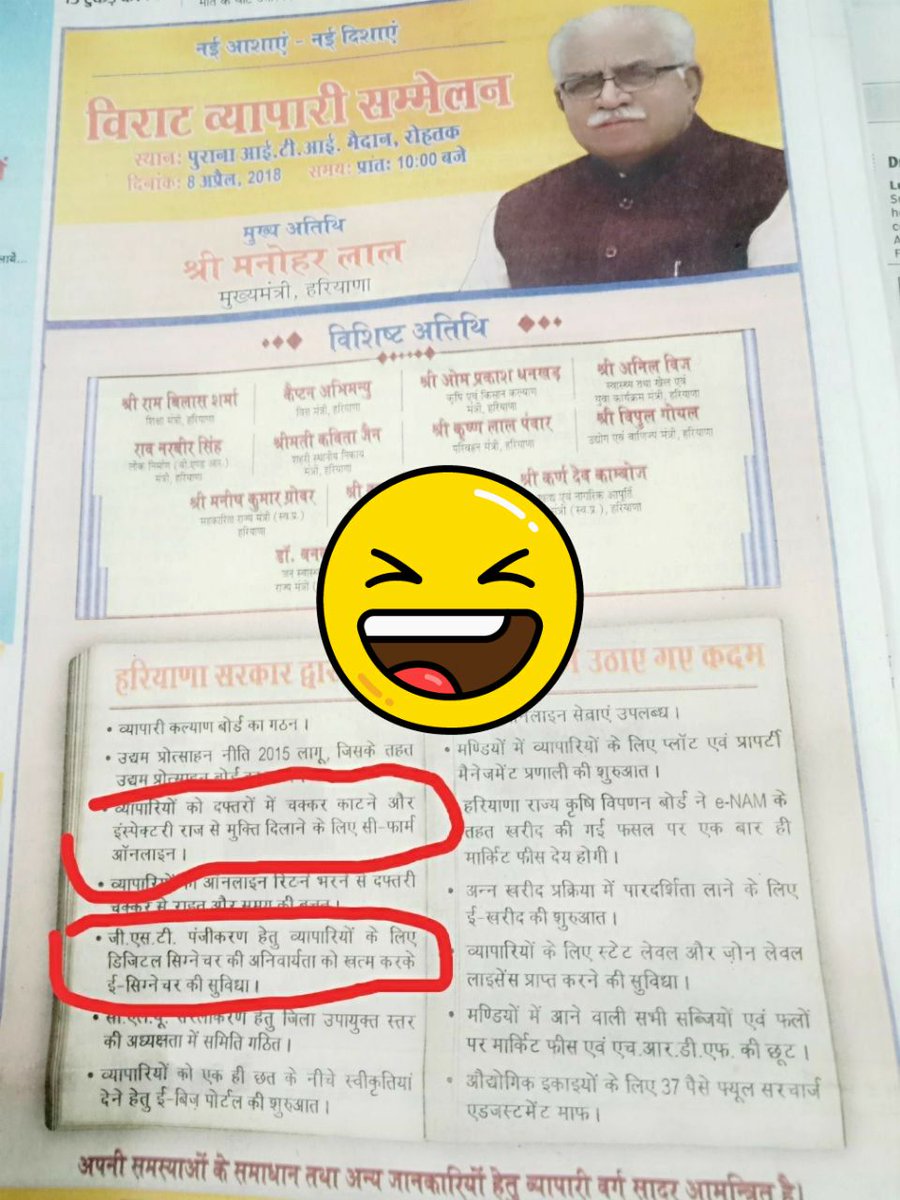 नई आशाएं - नई दिशाएं
विराट व्यापारी सम्मेलन
स्थान: पुराना आई.टी.आई. मैदान, रोहतक
दिनांक: 8 अप्रैल, 2018 समय: प्रांत: 10:00 बजे
मुख्य अतिथि
श्री मनोहर लाल
मुख्यमंत्री, हरियाणा
विशिष्ट अतिथि
श्री राम बिलास शर्मा
शिक्षा मंत्री, हरियाणा
कैप्टन अभिमन्यु
वित्त मंत्री, हरियाणा
श्री ओम प्रकाश धनखड़
कृषि एवं किसान कल्याण
मंत्री, हरियाणा
श्री अनिल विज
स्वास्थ्य तथा खेल एवं
युवा कार्यक्रम मंत्री, हरियाणा
राव नरबीर सिंह
लोक निर्माण (बी.एण्ड आर.)
मंत्री, हरियाणा
श्रीमती कविता जैन
शहरी स्थानीय निकाय
मंत्री, हरियाणा
श्री कृष्ण लाल पंवार
परिवहन मंत्री, हरियाणा
श्री विपुल गोयल
उद्योग एवं वाणिज्य मंत्री, हरियाणा
श्री मनीष कुमार ग्रोवर
सहकारिता राज्य मंत्री (स्व.प्र.)
हरियाणा
श्री
श्री कर्ण देव काम्बोज
एवं नागरिक आपूर्ति
मंत्री (स्व.प्र.), हरियाणा
डॉ.
जन
राज्य मंत्री
हरियाणा सरकार उठाए गए कदम
• व्यापारी कल्याण बोर्ड का गठन।
• उद्यम प्रोत्साहन नीति 2015 लागू, जिसके तहत
उद्यम प्रोत्साहन बोर्ड
• व्यापारियों को दफ्तरों में चक्कर काटने और
इंस्पेक्टरी राज से मुक्ति दिलाने के लिए सी-फार्म
ऑनलाइन।
• व्यापारियों को ऑनलाइन रिटर्न भरने से दफ्तरी
चक्कर से राहत और समय की बचत।
• जी.एस.टी. पंजीकरण हेतु व्यापारियों के लिए
डिजिटल सिग्नेचर की अनिवार्यता को खत्म करके
ई-सिग्नेचर की सुविधा।
• सी.एल.यू. सरलीकरण हेतु जिला उपायुक्त स्तर
की अध्यक्षता में समिति गठित।
• व्यापारियों को एक ही छत के नीचे स्वीकृतियां
देने हेतु ई-बिज़ पोर्टल की शुरुआत।
सेवाएं उपलब्ध।
• मण्डियों में व्यापारियों के लिए प्लॉट एवं प्रापर्टी
मैनेजमेंट प्रणाली की शुरुआत।
हरियाणा राज्य कृषि विपणन बोर्ड ने e-NAM के
तहत खरीद की गई फसल पर एक बार ही
मार्किट फीस देय होगी।
• अन्न खरीद प्रक्रिया में पारदर्शिता लाने के लिए
ई-खरीद की शुरुआत।
व्यापारियों के लिए स्टेट लेवल और ज़ोन लेवल
लाइसेंस प्राप्त करने की सुविधा।
• मण्डियों में आने वाली सभी सब्जियों एवं फलों
पर मार्किट फीस एवं एच.आर.डी.एफ. की छूट।
• औद्योगिक इकाइयों के लिए 37 पैसे फ्यूल सरचार्ज
एडजस्टमेंट माफ।
अपनी समस्याओं के समाधान तथा अन्य जानकारियों हेतु व्यापारी वर्ग सादर आमन्त्रित है।